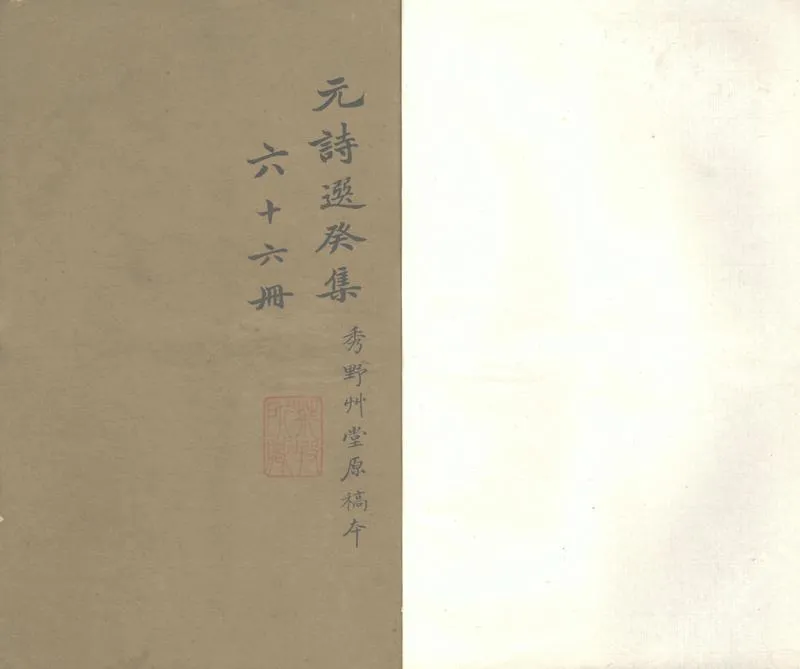 元詩選癸集
秀野艸堂原稿本
六十六冊